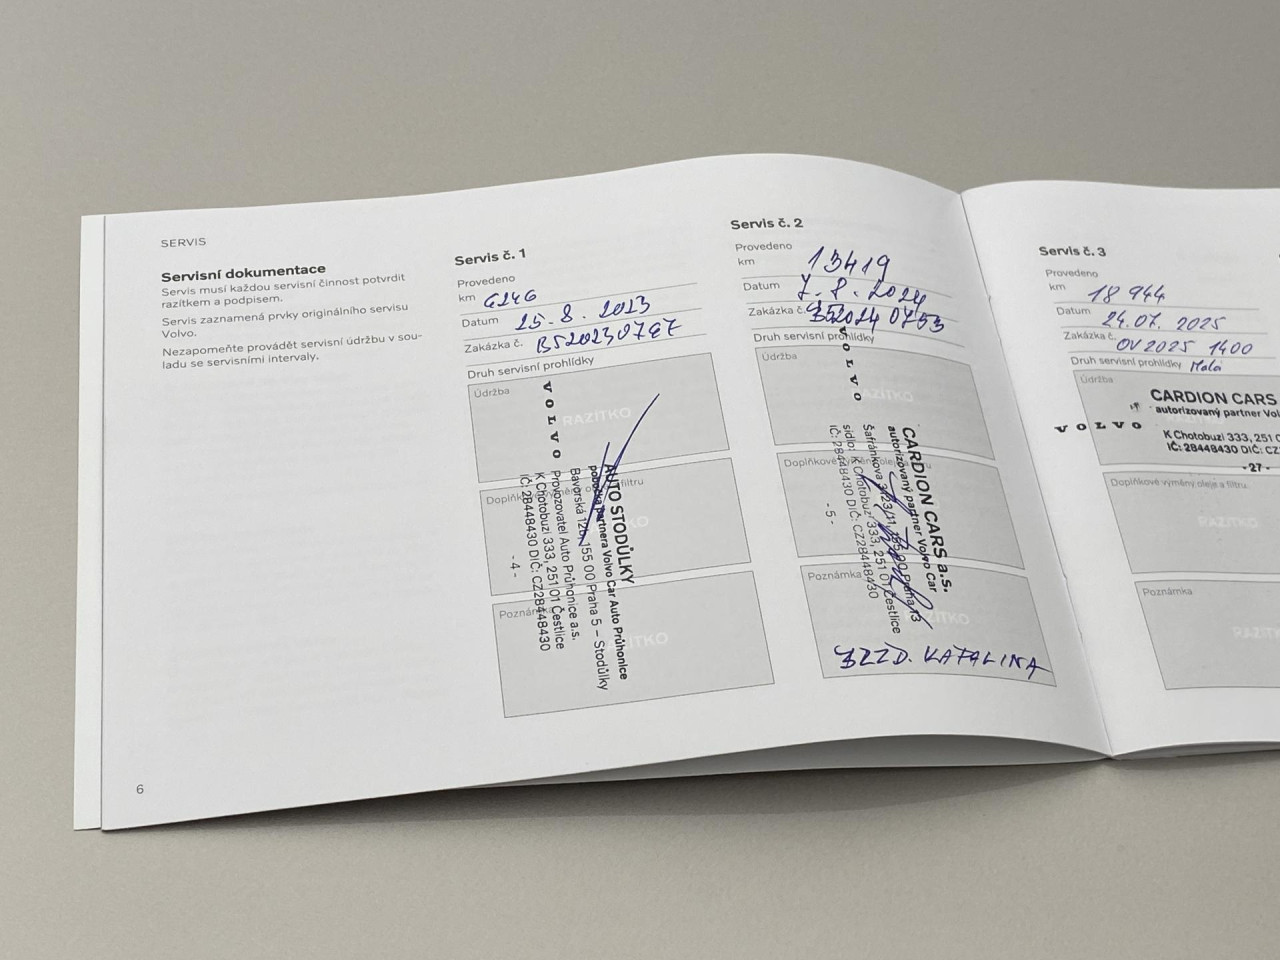 SERVIS
Servisní dokumentace
Servis musí každou servisní činnost potvrdit
razítkem a podpisem.
Servis zaznamená prvky originálního servisu
Volvo.
Nezapomeňte provádět servisní údržbu v sou-
ladu se servisními intervaly.
6
Servis č. 1
Provedeno
km 6246
Datum 25. 8. 2023
Zakázka č. BS20230787
Druh servisní prohlídky
Údržba
RAZÍTKO
Doplňkové výměny oleje a filtru
Poznámka
RAZÍTKO
VOLVO
AUTO STODŮLKY
pobočka partnera Volvo Car Auto Průhonice
Bavorská 12b, 155 00 Praha 5 – Stodůlky
Provozovatel Auto Průhonice a.s.
K Chotobuzi 333, 251 01 Čestlice
IČ: 28448430 DIČ: CZ28448430
- 4 -
Servis č. 2
Provedeno
km 13419
Datum 7. 8. 2024
Zakázka č.
Druh servisní prohlídky
Údržba
RAZÍTKO
Doplňkové výměny oleje
Poznámka
RAZÍTKO
VOLVO
CARDION CARS a.s.
autorizovaný partner Volvo Car
Šafránkova
sídlo: K Chotobuzi 333, 251 01 Čestlice
IČ: 28448430 DIČ: CZ28448430
- 5 -
BZZD. KATALINA
Servis č. 3
Provedeno
km 18 944
Datum 24.07. 2025
Zakázka č. OV2025 1400
Druh servisní prohlídky Malá
Údržba
VOLVO
CARDION CARS
autorizovaný partner
K Chotobuzi 333, 251
IČ: 28448430 DIČ: CZ
- 27 -
Doplňkové výměny oleje a filtru
RAZÍTKO
Poznámka